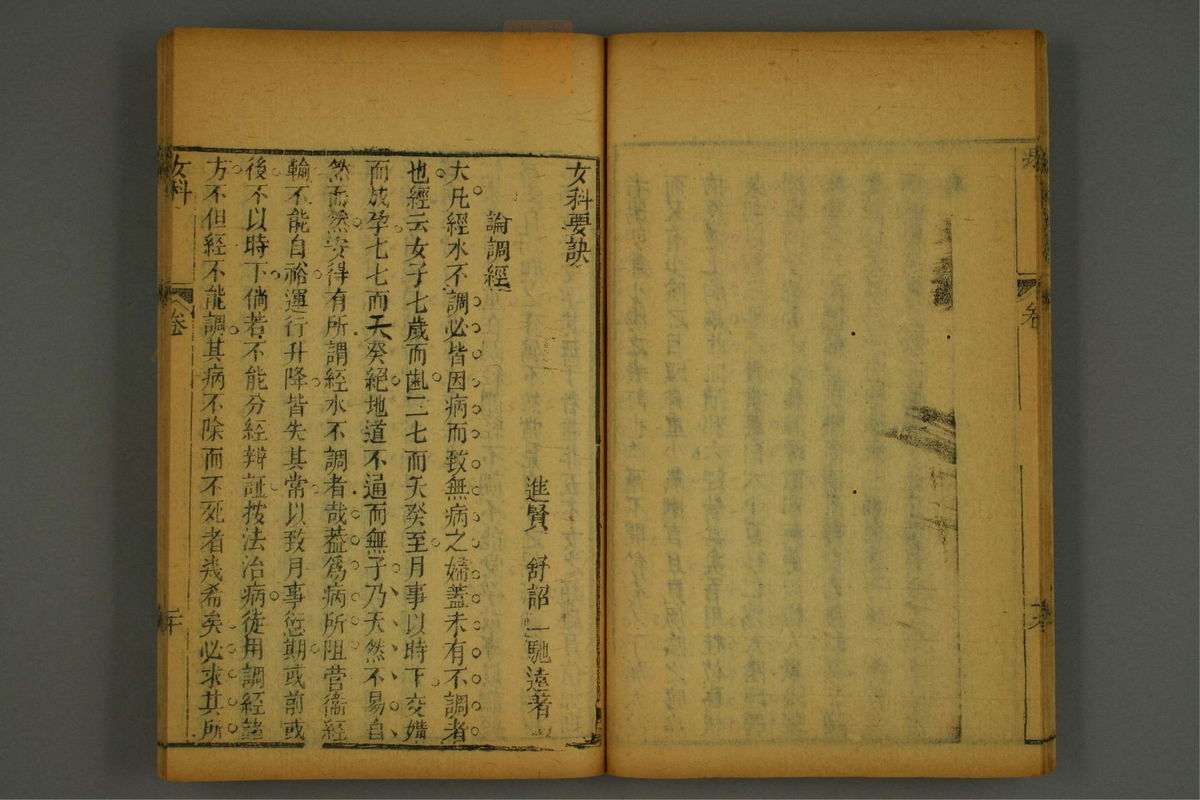 女科要訣
進賢 舒詔 馳遠著
論調經
大凡經水不調必皆因病而致無病之婦蓋未有不調者
也經云女子七歲而齓二七而天癸至月事以時下交媾
而成孕七七而天癸絕地道不通而無子乃天然不易自
然而然安得有所謂經水不調者哉葢爲病所阻營衞經
輸不能自裕運行升降皆失其常以致月事愆期或前或
後不以時下倘若不能分經辨証按法治病徒用調經諸
方不但經不能調其病不除而不死者幾希矣必求其所
女科
卷